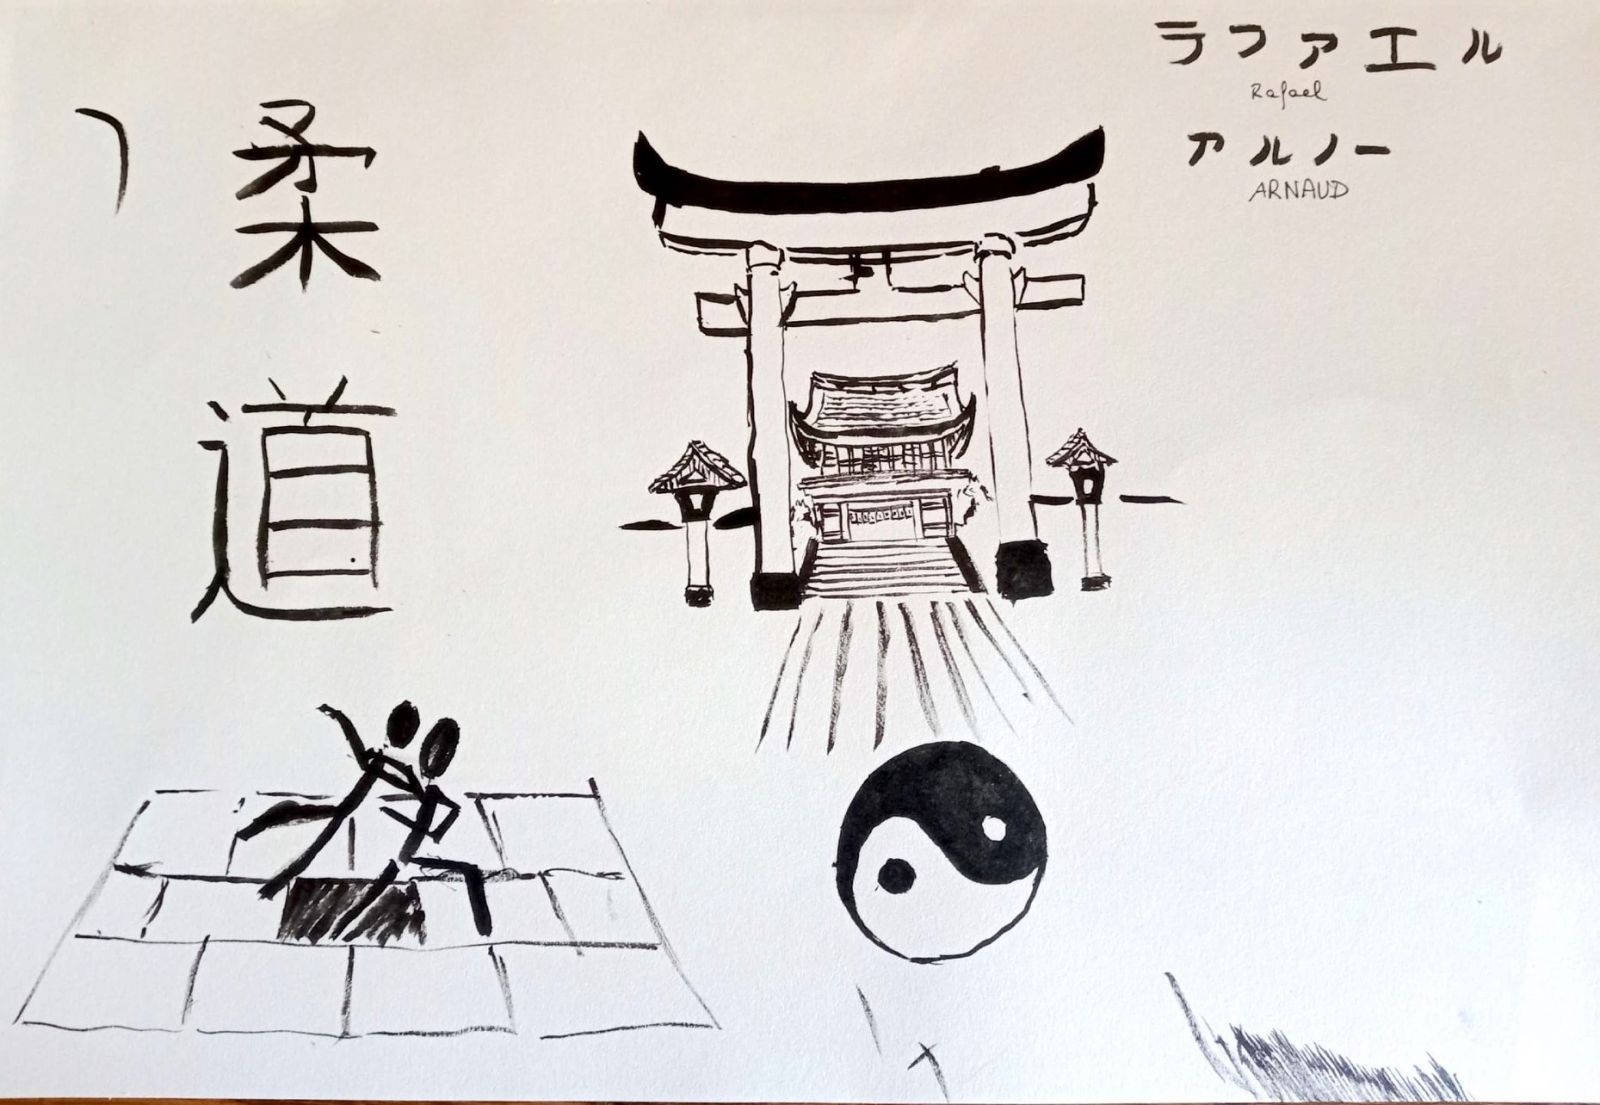 ラファエル
Rafael
アルノー
ARNAUD
柔
道